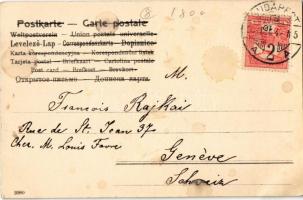 1800
Postkarte — Carte postale
Weltpostverein — Union postale universelle
Levelező-Lap — Correspondenzkarte — Dopisnice
Karta korespondencyjna — Korespondenční lístek
Tarjeta postal — Briefkaart — Cartolina postale
Post card — Brefkort — Brevkort
Открытое письмо — Дописна карта.
BUDAPEST
2
M.
François Rajkai
Rue de St. Jean 37.
Cher. M. Louis Favre
Genève
Schweiz